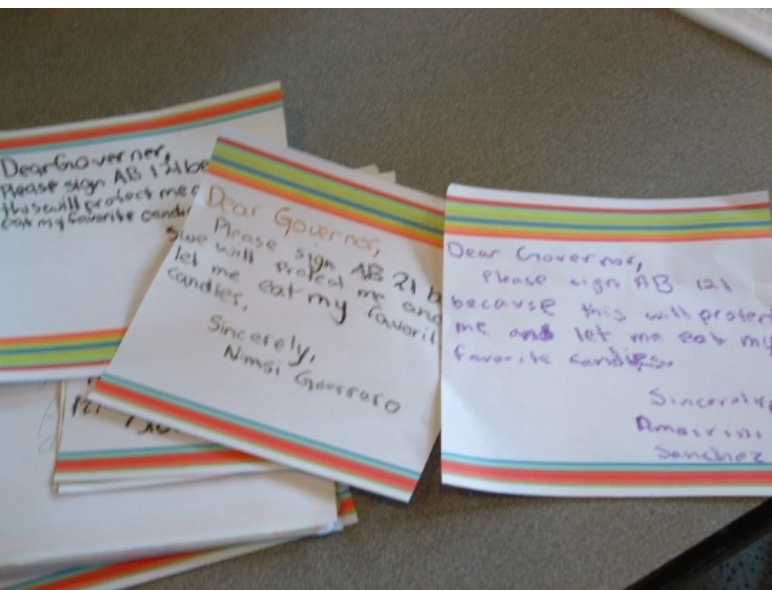 Dear Governer,
Please sign AB 121 be
this will protect me a
eat my favorite candie
Dear Governor,
Please sign AB 21 b
swe will protect me and
let me eat my favorit
candies,
Sincerely,
Nimsi Guerrero
Dear Governor,
Please sign AB 121
because this will protect
me and let me eat my
favorite candies
Sincerely,
Sanchez
121